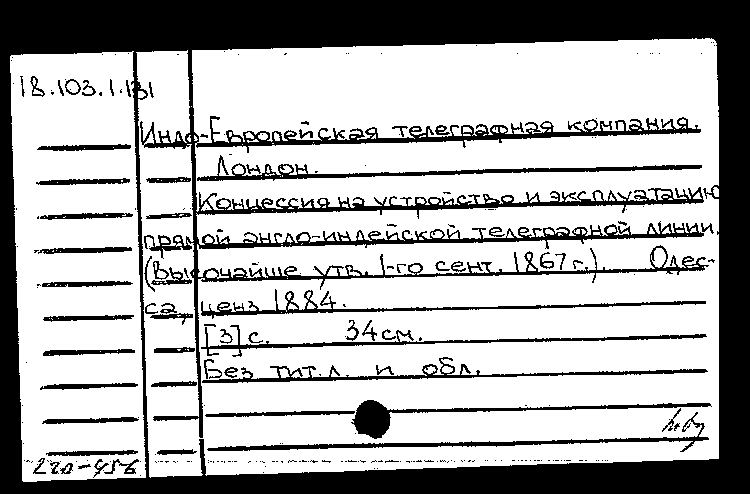 18.103.1.131
Индо-Европейская телеграфная компания.
Лондон.
Концессия на устройство и эксплуатацию
прямой англо-индейской телеграфной линии.
(Высочайше утв. 1-го сент. 1867 г.). Одес-
са, ценз 1884.
[3] с. 34 см.
Без тит. л. и обл.